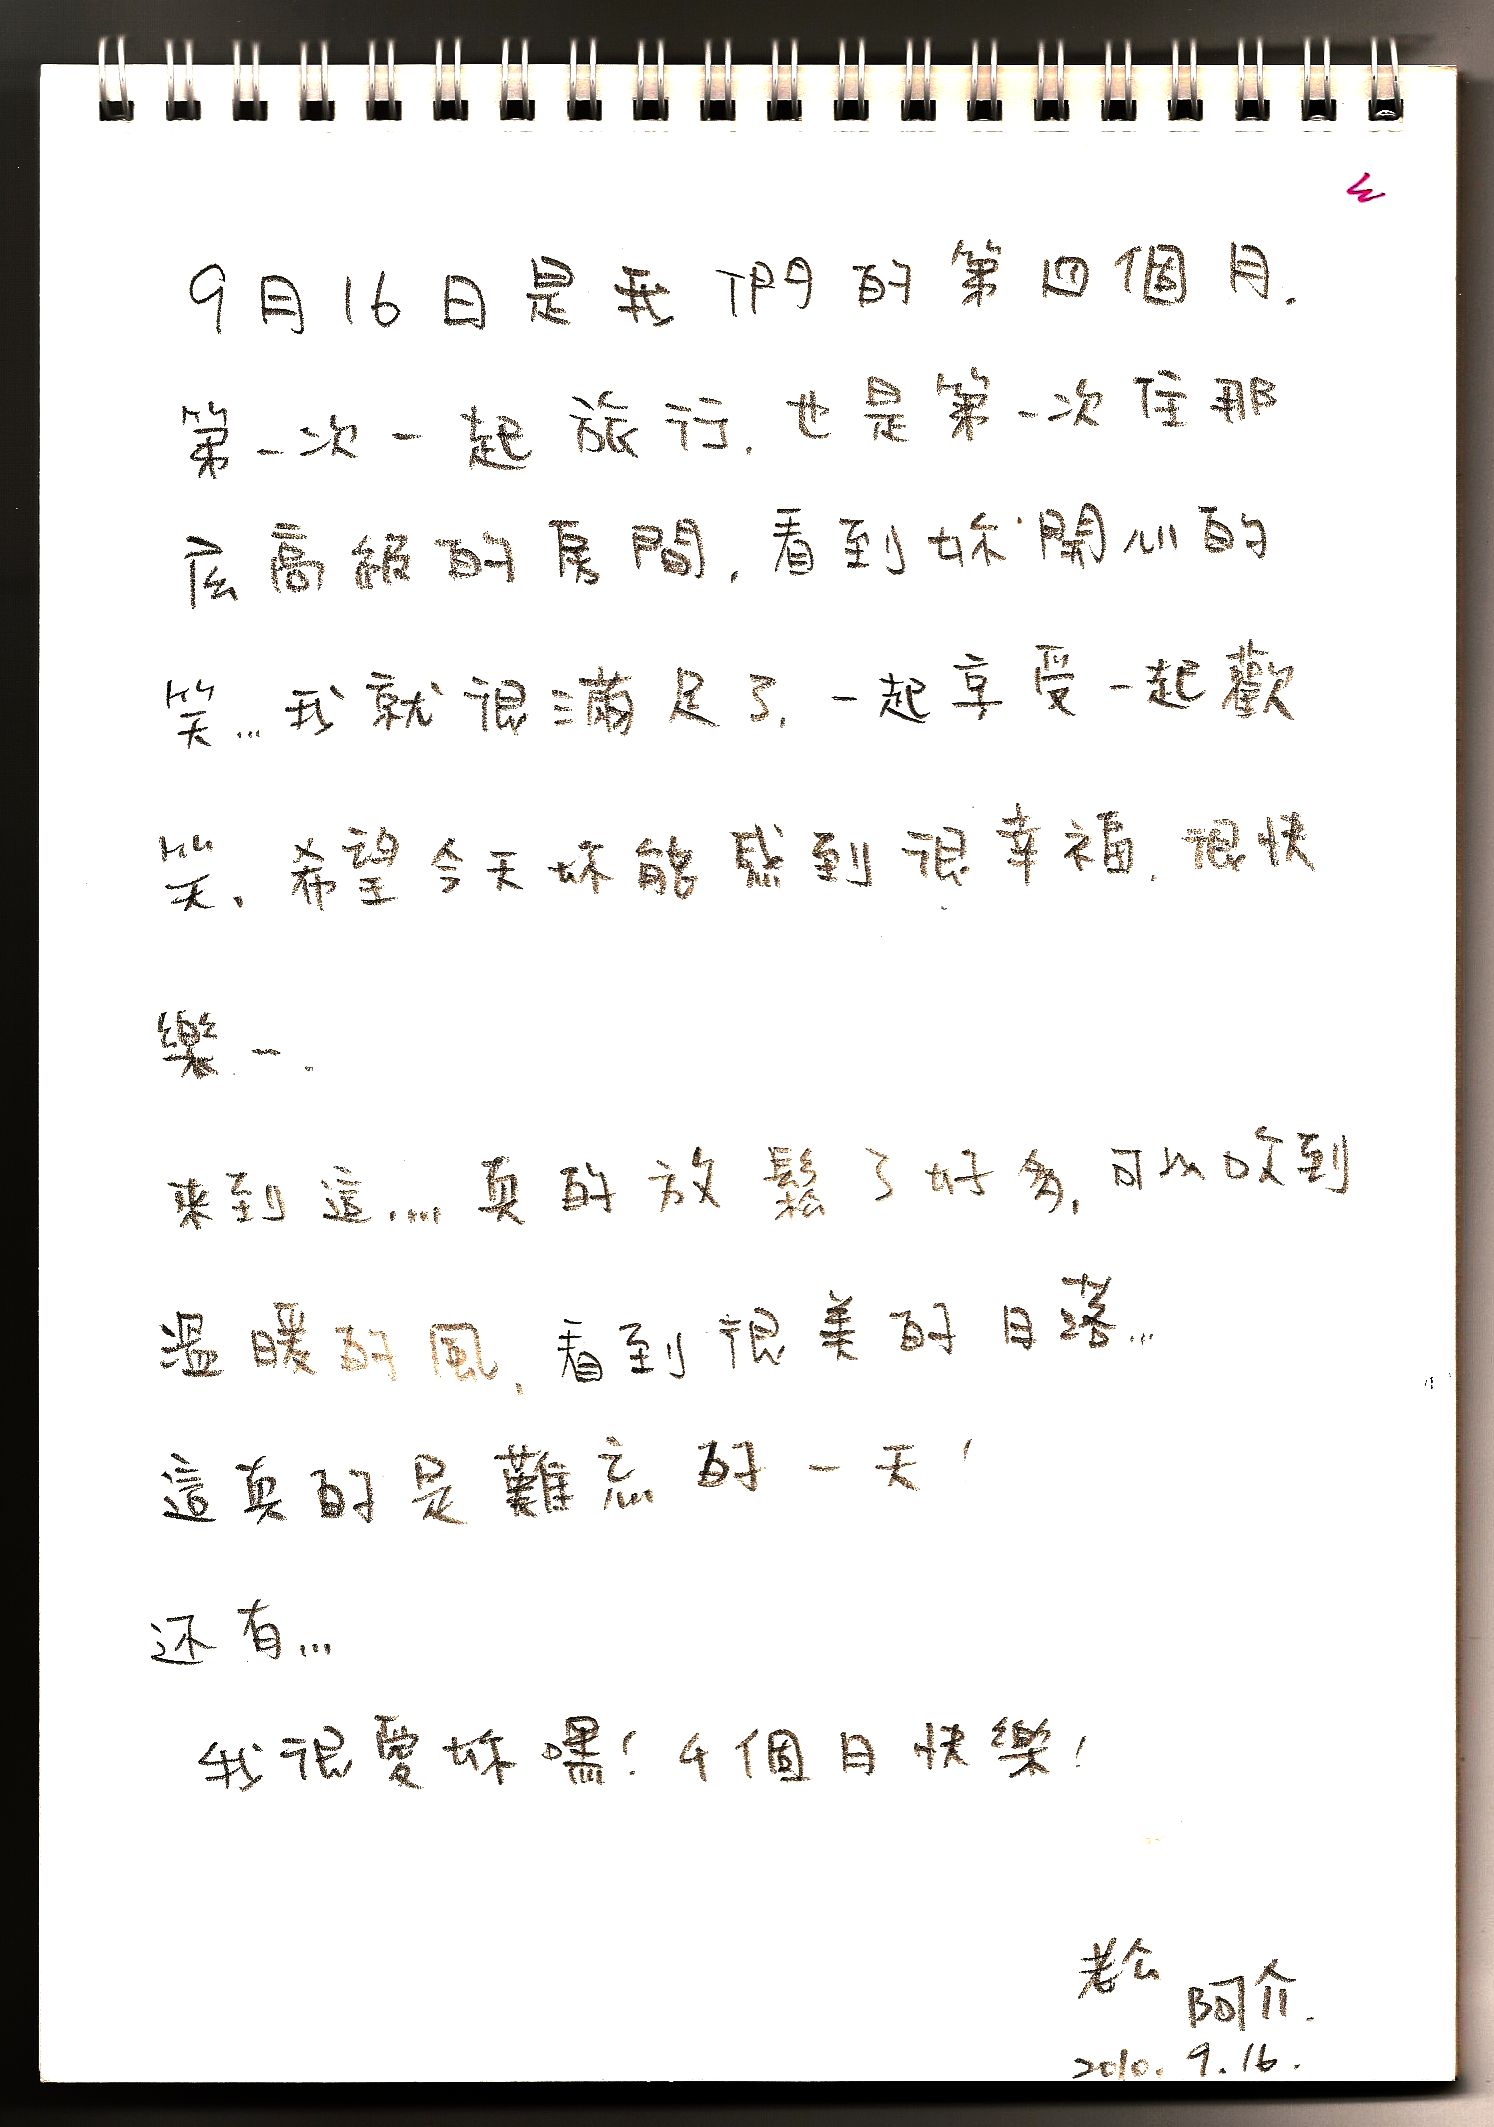 9月16日是我們的第四個月.
第一次一起旅行.也是第一次住那
広高級的房間.看到妳開心的
笑...我就很滿足了.一起享受一起歡
笑.希望今天妳能感到很幸福.很快
樂一.
來到這.....真的放鬆了好多.可以吹到
溫暖的風.看到很美的日落...
這真的是難忘的一天!
还有...
我很愛妳嘿!4個月快樂!
老公
阿介.
2010.9.16.